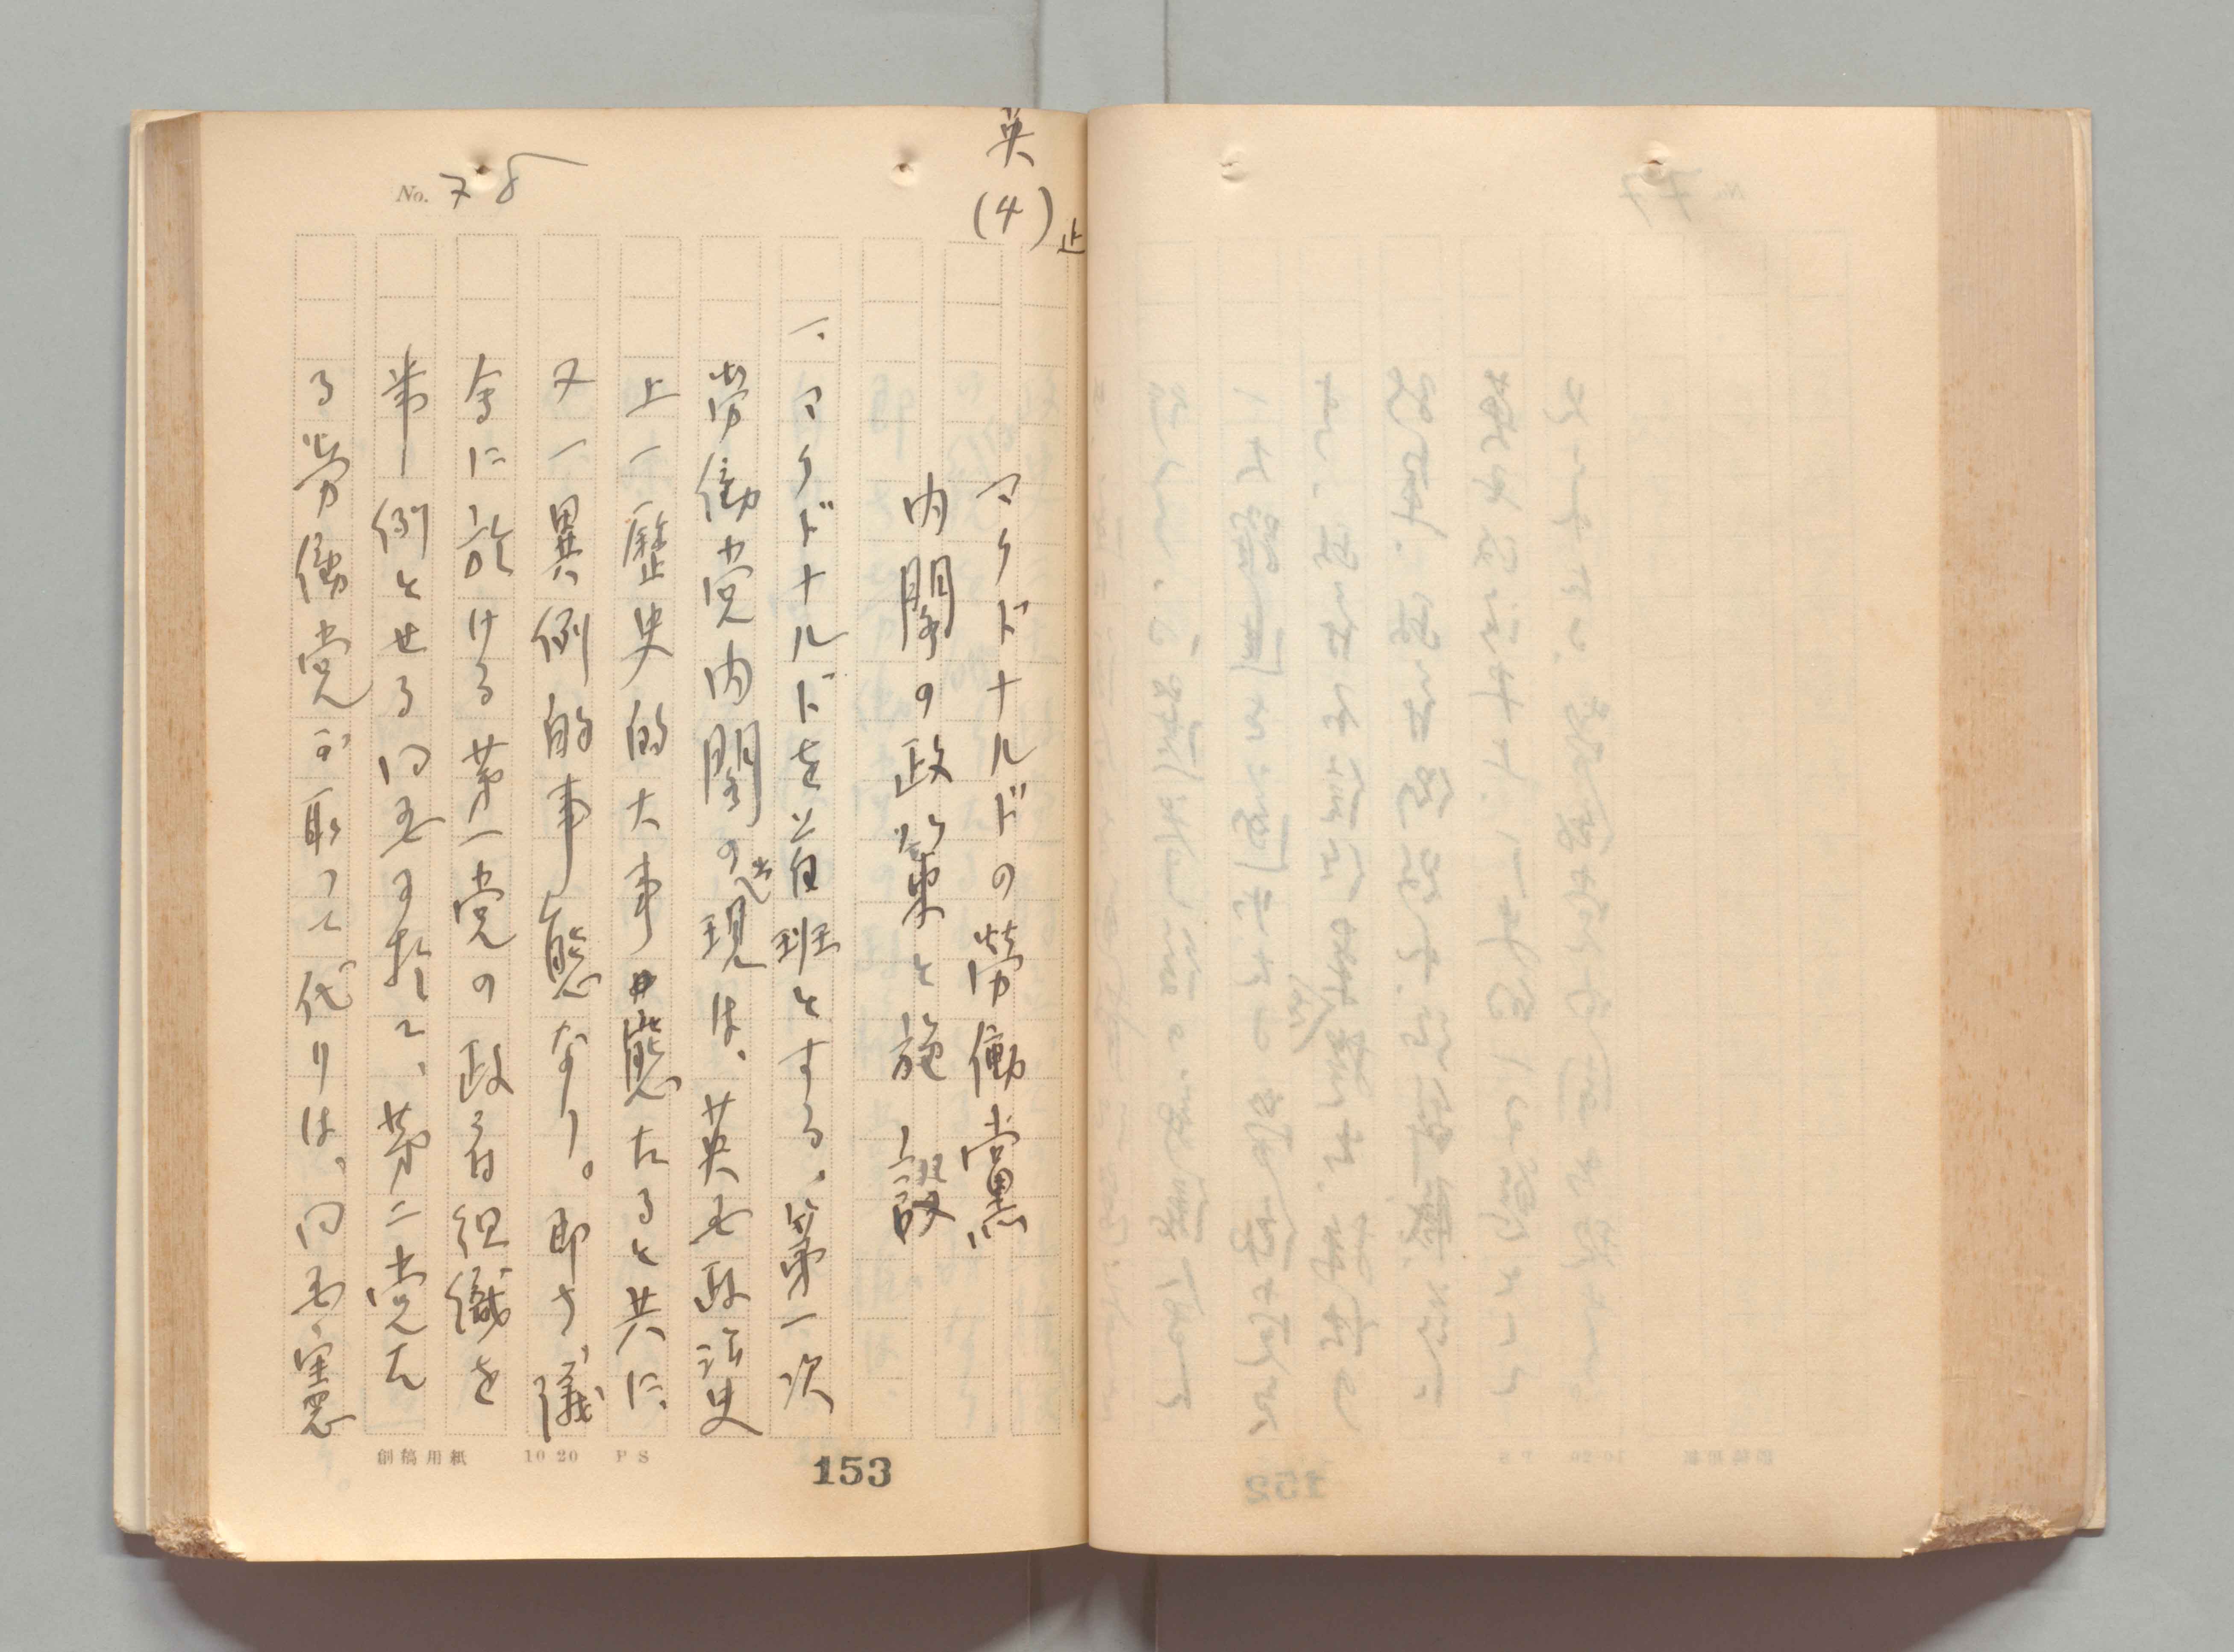 英
(4)
止
No. 78
マクドナルドの労働黨
内閣の政策と施設
一、マクドナルドを首班とする、第一次
労働党内閣の出現は、英国政治史
上一歴史的大事態たると共に、
又一異例的事態なり。即ち、議
会に於ける第一党の政府組織を
常例とせる同国に於て、第二党た
る労働党が取って代りは、同国憲
創稿用紙 10 20 PS
153